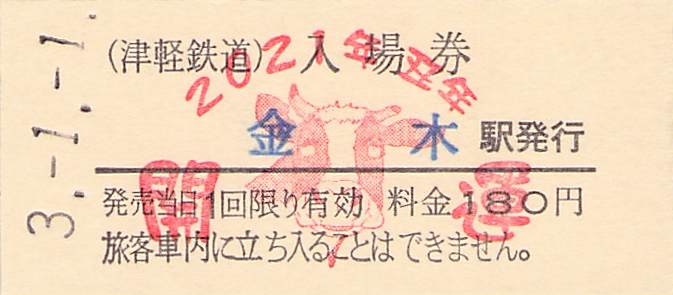 3.-1.-1.
(津軽鉄道) 入場券
2021年丑年
金木駅発行
開運
発売当日1回限り有効 料金180円
旅客車内に立ち入ることはできません。